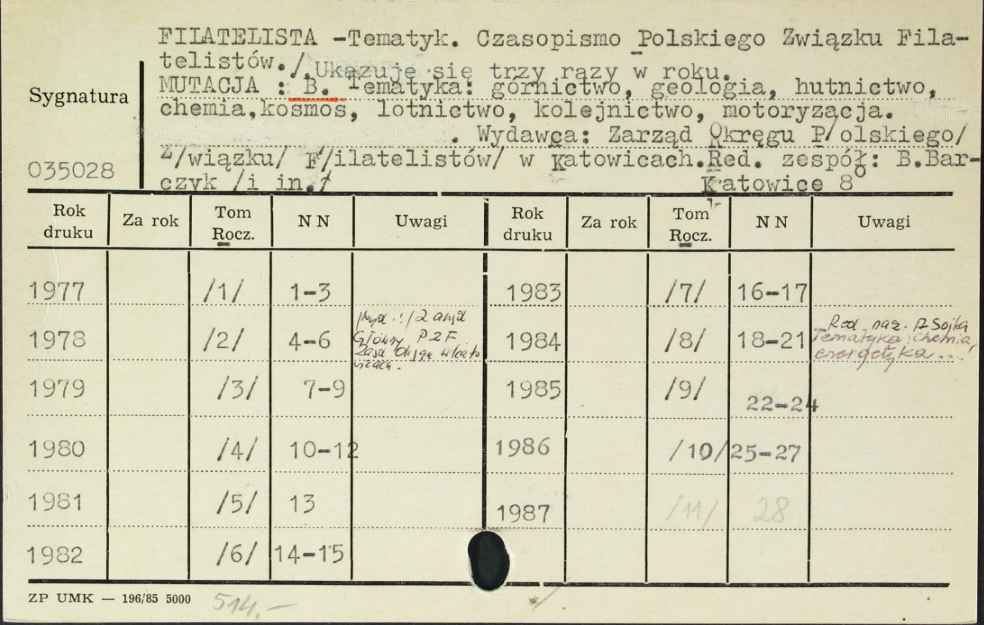 FILATELISTA -Tematyk. Czasopismo Polskiego Związku Fila-
telistów./ Ukazuje się trzy razy w roku.
MUTACJA : B. Tematyka: górnictwo, geologia, hutnictwo,
chemia,kosmos, lotnictwo, kolejnictwo, motoryzacja.
Sygnatura
. Wydawca: Zarząd Okręgu P/olskiego/
Z/wiązku/ F/ilatelistów/ w Katowicach.Red. zespół: B.Bar-
035028
czyk /i in./ Katowice 8°
Rok druku Za rok Tom Rocz. N N Uwagi Rok druku Za rok Tom Rocz. N N Uwagi
1977 /1/ 1-3 1983 /7/ 16-17
1978 /2/ 4-6 Główny PZF 1984 /8/ 18-21 Red. nacz. P. Sojka Tematyka: chemia, energetyka...
1979 /3/ 7-9 1985 /9/ 22-24
1980 /4/ 10-12 1986 /10/ 25-27
1981 /5/ 13 1987 /11/ 28
1982 /6/ 14-15
ZP UMK — 196/85 5000 514,-